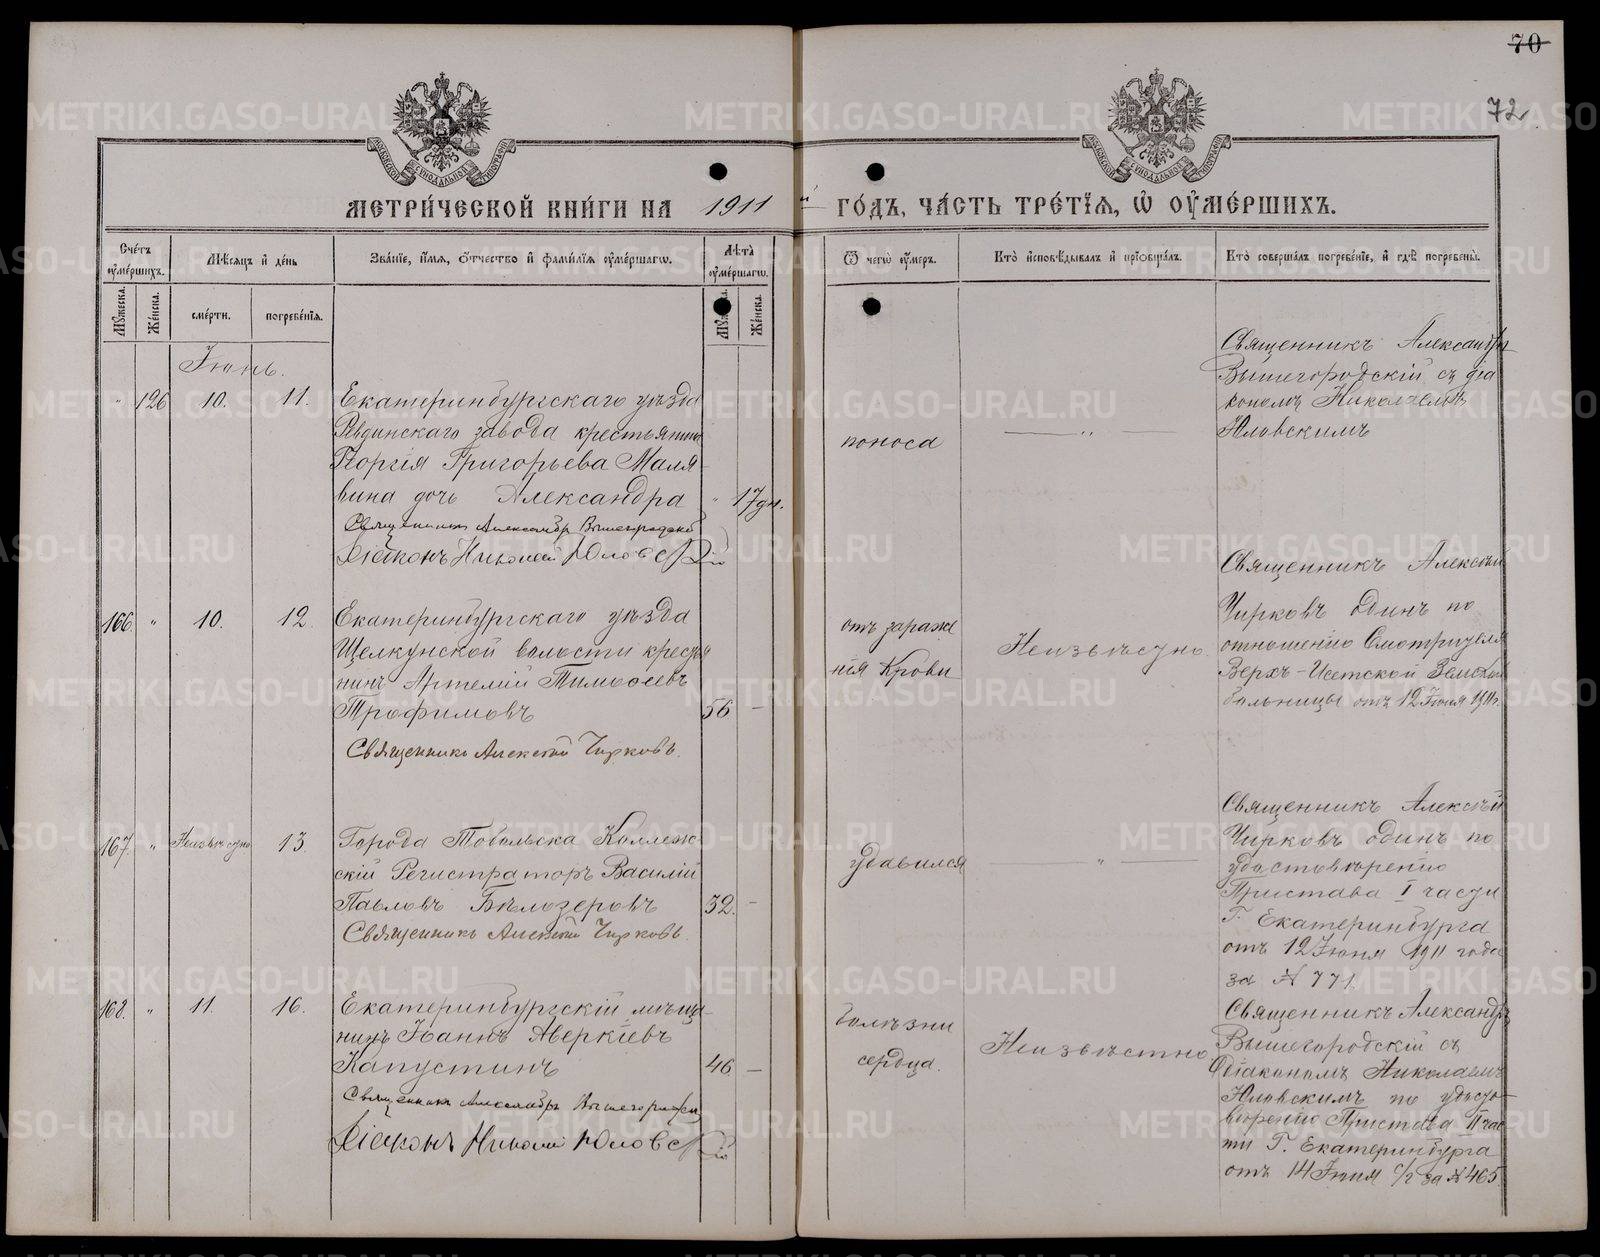 70
72
МОСКОВСКОЙ СѴНОДАЛЬНОЙ ТИПОГРАФІИ
МОСКОВСКОЙ СѴНОДАЛЬНОЙ ТИПОГРАФІИ
МЕТРИ́ЧЕСКОЙ КНИ́ГИ НА 1911 й ГО́ДЪ, ЧА́СТЬ ТРЕ́ТІѦ, Ѡ ОУМЕ́РШИХЪ.
Сче́тъ оуме́ршихъ.
Мѣ́сяцъ и де́нь
Зва́нїе, и́мѧ, ѻ́тчество и фами́лїѧ оуме́ршагѡ.
Лѣ́та оуме́ршагѡ.
Ѿ чегѡ̀ оу́меръ.
Кто̀ исповѣ́дывалъ и прїобща́лъ.
Кто̀ соверша́лъ погребе́нїе, и гдѣ̀ погребены̀.
Мꙋ́жеска.
Же́нска.
сме́рти.
погребе́нїѧ.
Мꙋ́жеска.
Же́нска.
Іюнь.
" 126 10. 11.
Екатеринбургскаго уѣзда
Ревдинскаго завода крестьянина
Георгія Григорьева Маля-
вина дочь Александра " 17 дн.
Священникъ Александръ Вышегородскій
Діаконъ Николай Юловскій
поноса
— " —
Священникъ Александръ
Вышегородскій съ діа
кономъ Николаемъ
Юловскимъ
166 " 10. 12.
Екатеринбургскаго уѣзда
Щелкунской волости кресть
нинъ Артемій Тимофеевъ
Трофимовъ 56 —
Священникъ Алексѣй Чирковъ.
отъ зараже
нія крови
Неизвѣстно
Священникъ Алексѣй
Чирковъ одинъ по
отношенію Смотрителя
Верхъ-Исетской Земской
больницы отъ 12 Іюня 1911 г.
167. " Неизвѣстно 13.
Города Тобольска Коллеж
скій Регистраторъ Василій
Павловъ Бѣлозеровъ 32. —
Священникъ Алексѣй Чирковъ.
удавился
— " —
Священникъ Алексѣй
Чирковъ одинъ по
удостовѣренію
Пристава I части
Г. Екатеринбурга
отъ 12 Іюня 1911 года
за № 771.
168. " 11. 16.
Екатеринбургскій мѣща-
нинъ Іоаннъ Аверкіевъ
Капустинъ 46 —
Священникъ Александръ Вышегородскій
Діаконъ Николай Юловскій
болѣзни
сердца.
Неизвѣстно
Священникъ Александръ
Вышегородскій съ
Діакономъ Николаемъ
Юловскимъ по удосто-
вѣренію Пристава II час
ти Г. Екатеринбурга
отъ 14 Іюня с/г за № 465.
METRIKI.GASO-URAL.RU